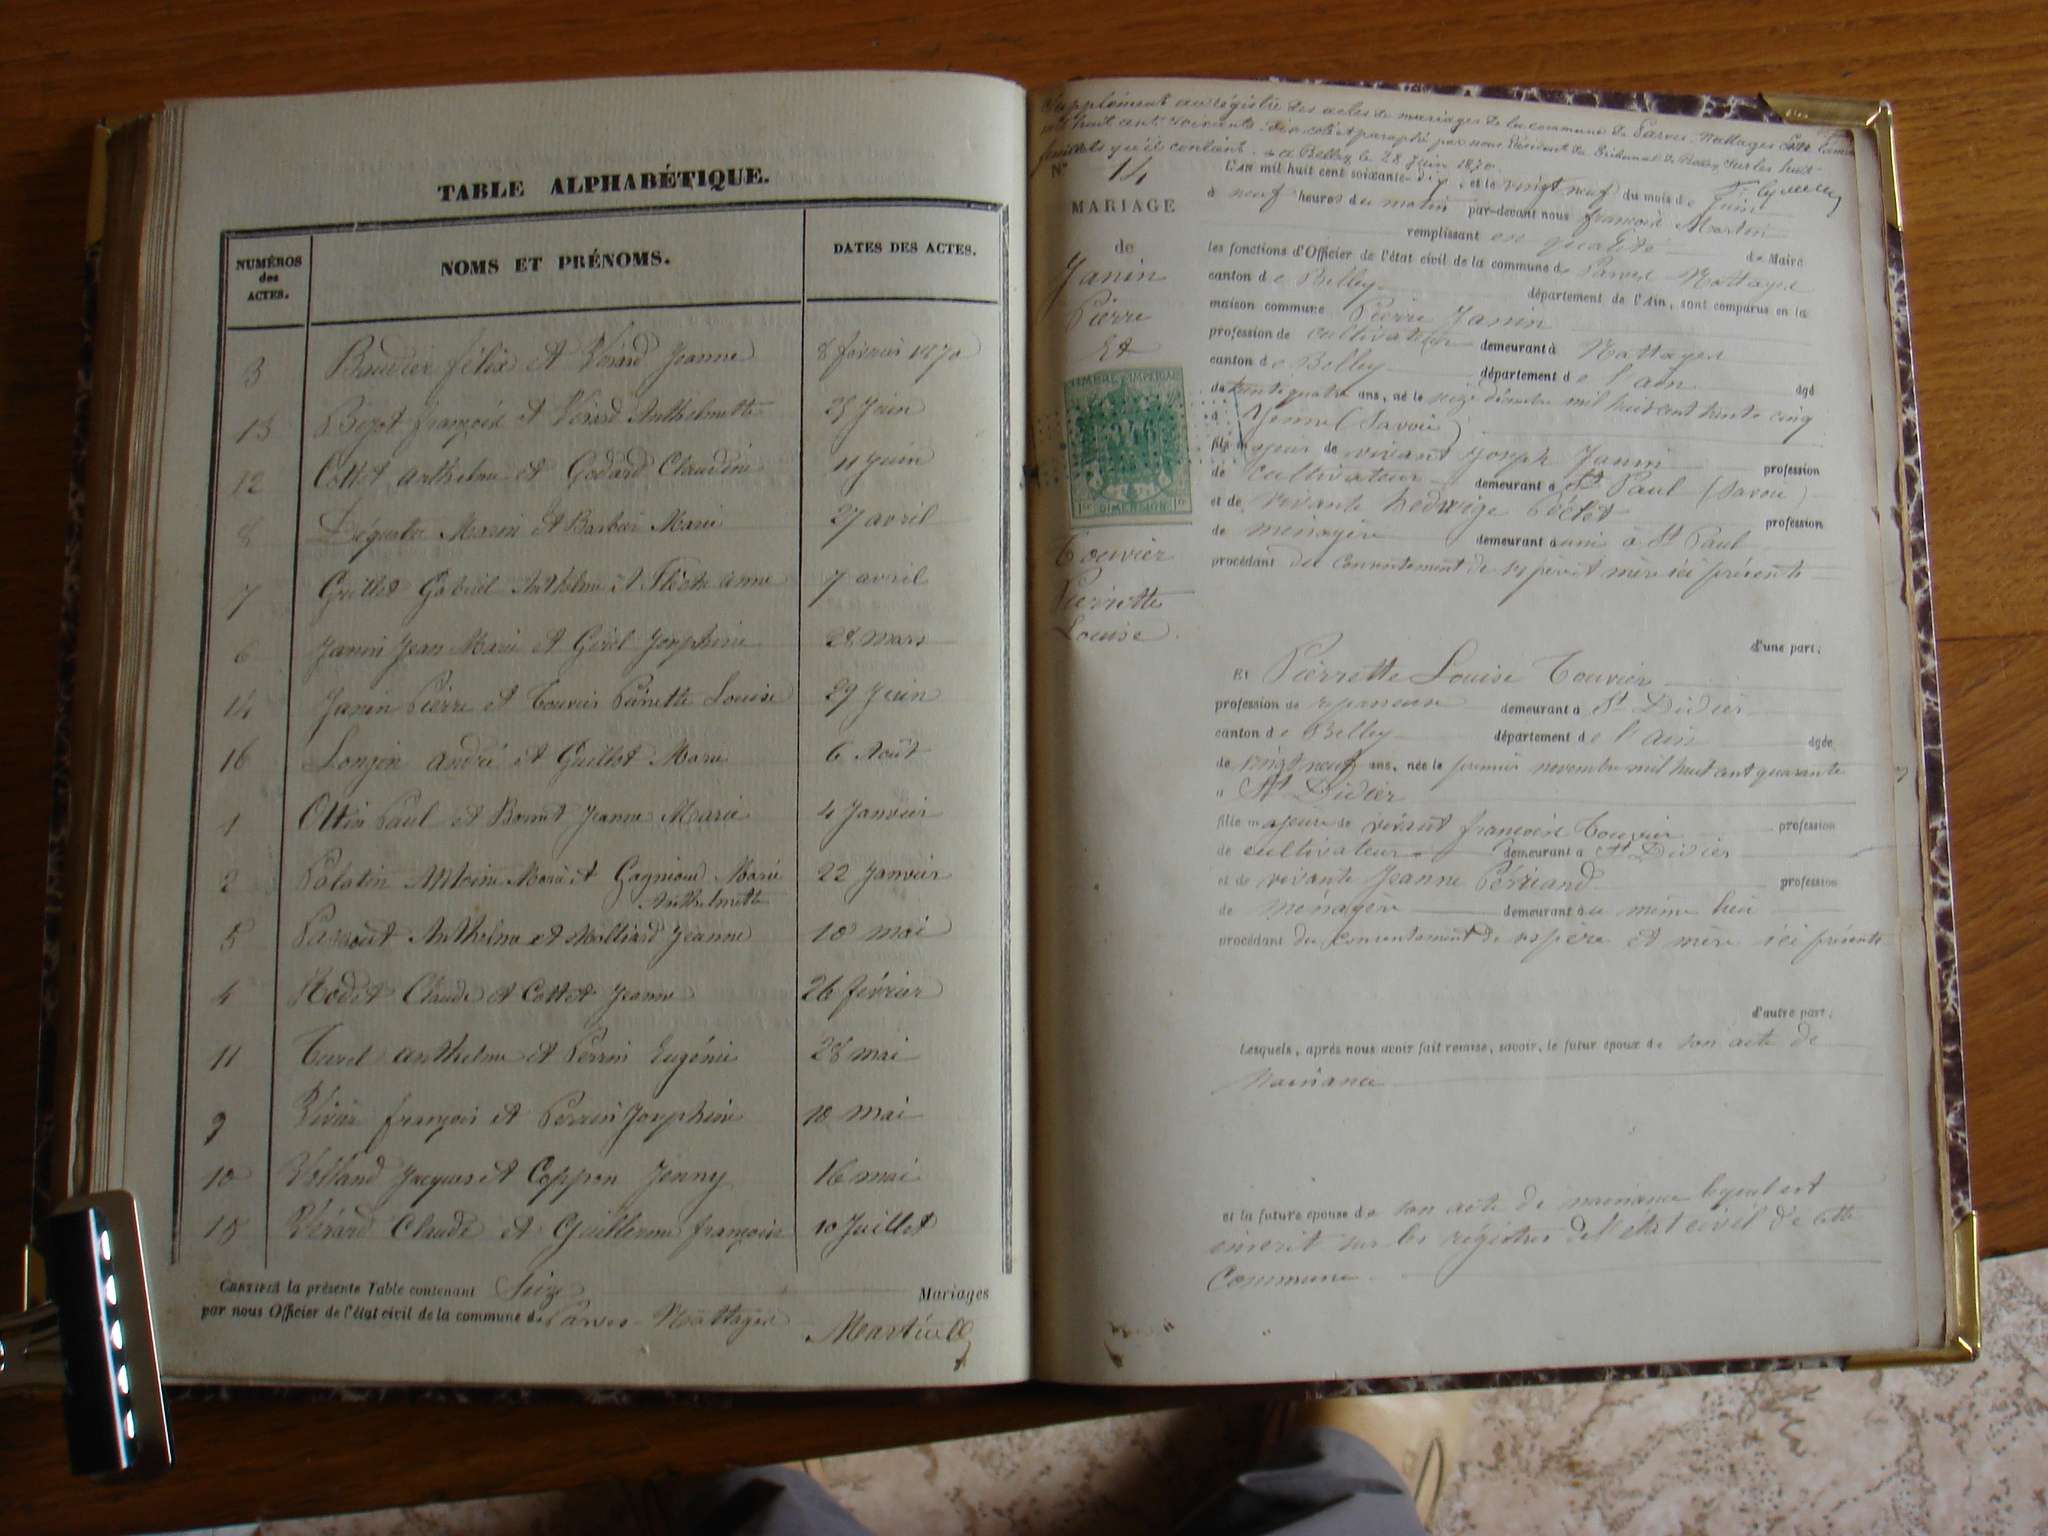 TABLE ALPHABÉTIQUE.
NUMÉROS des ACTES.
NOMS ET PRÉNOMS.
DATES DES ACTES.
3 Baudier félix et Vérard Jeanne 8 février 1870
13 Bizot françois et Vérard Anthelmette 25 Juin
12 Cottet Anthelme et Godard Claudine 11 Juin
8 Marin et Barbier Marie 27 avril
7 Guillot Gabriel Anthelme et 7 avril
6 Janin Jean Marie et Girel Josephine 28 mars
14 Janin Pierre et Touvier Pierrette Louise 29 Juin
16 Longin André et Guillot Marie 6 Août
1 Ottin Paul et Jeanne Marie 4 Janvier
2 Palatin Antoine Marie et Marie 22 Janvier
Anthelmette
5 Anthelme et Milliard Jeanne 10 mai
4 Rodet Claude et Cottet Jeanne 26 février
11 Anthelme et Perrin Eugénie 28 mai
9 françois et Perrin Josephine 10 mai
10 Volland Jacques et Coppon Jenny 16 mai
15 Vérard Claude et Guillerme françoise 10 Juillet
CERTIFIÉ la présente Table contenant Seize Mariages
par nous Officier de l'état civil de la commune de Parves-Nattages
Martin
Supplément au régistre des actes de mariages de la commune de Parves-Nattages
mil huit cent soixante-dix coté et paraphé par nous Président du Tribunal de Belley sur les huit
feuillets qu'il contient. à Belley le 28 Juin 1870.
No 14
MARIAGE
de
Janin
Pierre
Et
TIMBRE IMPÉRIAL
DIMENSION
Touvier
Pierrette
Louise.
L'AN mil huit cent soixante-dix, et le vingt neuf du mois de Juin
à neuf heures du matin par-devant nous françois Martin
remplissant en qualité de Maire
les fonctions d'Officier de l'état civil de la commune de Parves Nattages
canton de Belley département de l'Ain, sont comparus en la
maison commune Pierre Janin
profession de cultivateur demeurant à Nattages
canton de Belley département de l'ain âgé
de trente quatre ans, né le seize décembre mil huit cent trente cinq
à Yenne (Savoie)
fils majeur de vivant joseph Janin profession
de cultivateur demeurant à St Paul (Savoie)
et de vivante hedwige profession
de ménagère demeurant à St Paul
procédant du consentement de ses père et mère ici présents
d'une part;
Et Pierrette Louise Touvier
profession de demeurant à St Didier
canton de Belley département de l'ain âgée
de vingt neuf ans, née le premier novembre mil huit cent quarante
à St Didier
fille majeure de vivant françois Touvier profession
de cultivateur demeurant à St Didier
et de vivante Jeanne profession
de ménagère demeurant au même lieu
procédant du consentement de ses père et mère ici présents
d'autre part;
Lesquels, après nous avoir fait remise, savoir, le futur époux de son acte de
naissance
et la future épouse de son acte de naissance lequel est
inscrit sur les régistres de l'état civil de cette
Commune